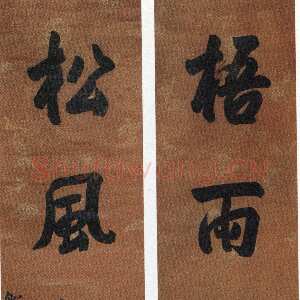 梧雨
松風